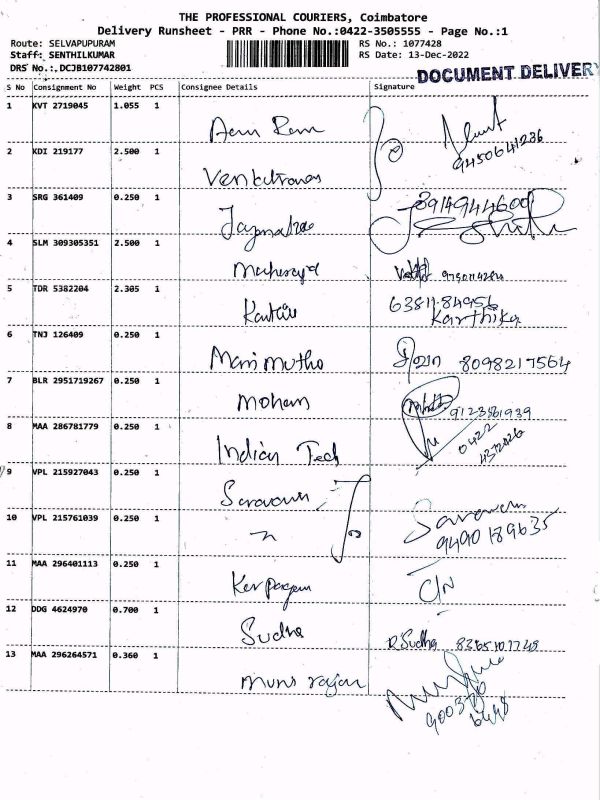 THE PROFESSIONAL COURIERS, Coimbatore
Delivery Runsheet - PRR - Phone No.:0422-3505555 - Page No.:1
Route: SELVAPUPURAM RS No.: 1077428
Staff: SENTHILKUMAR RS Date: 13-Dec-2022
DRS No.:. DCJB107742801 DOCUMENT DELIVERY
S No Consignment No Weight PCS Consignee Details Signature
1 KVT 2719045 1.055 1
9450641286
2 KDI 219177 2.500 1
3 SRG 361409 0.250 1
8914944600
4 SLM 309305351 2.500 1
5 TDR 5382204 2.305 1
63811 84956
Karthika
6 TNJ 126409 0.250 1
Mari mutho 8098217564
7 BLR 2951719267 0.250 1
Mohan
8 MAA 286781779 0.250 1
0422
Indian Tech
9 VPL 215927043 0.250 1
Saravanan
10 VPL 215761039 0.250 1
Saravanan
9490189635
11 MAA 296401113 0.250 1
C/N
12 DDG 4624970 0.700 1
Sudha R Sudha
13 MAA 296264571 0.360 1